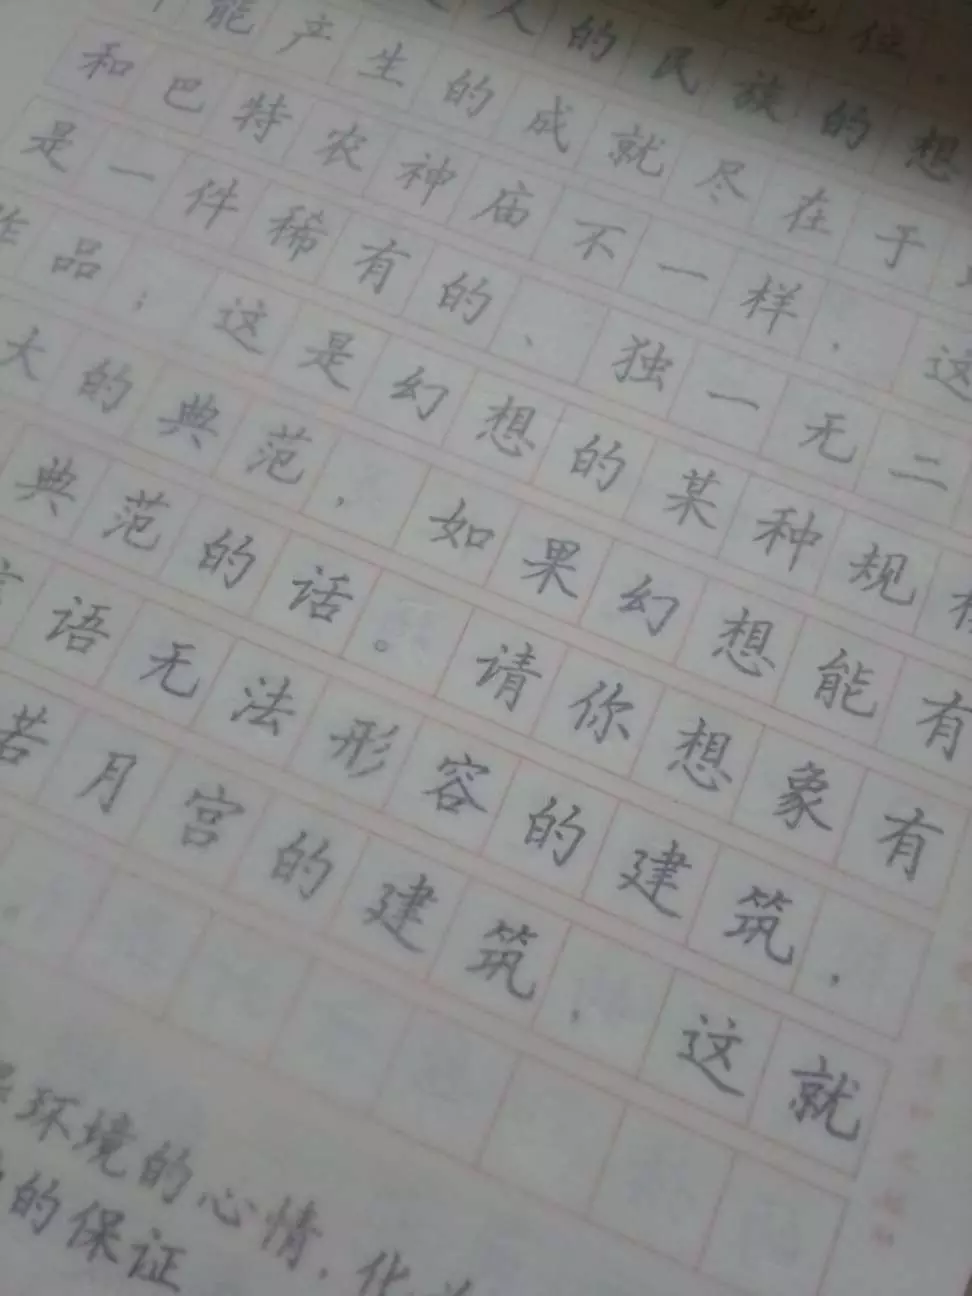 的地位，
人的民族的想
能产生的成就尽在于
和巴特农神庙不一样，这
是一件稀有的、独一无二
作品；这是幻想的某种规
大的典范，如果幻想能有
典范的话。请你想象有
言语无法形容的建筑，
若月宫的建筑，这就
环境的心情，化
的保证